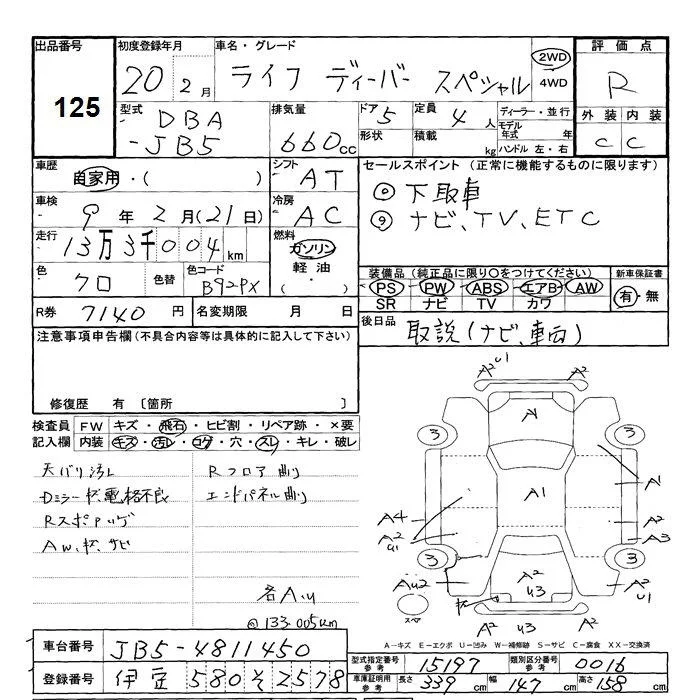 出品番号
125
初度登録年月
20 2月
車名・グレード
ライフ ディーバー スペシャル
2WD
4WD
評価点
R
型式
DBA
-JB5
排気量
660cc
ドア 5
形状
定員 4人
積載 kg
ディーラー・並行
モデル年式 年
ハンドル 左・右
外装 内装
C C
車歴
自家用・( )
シフト
AT
車検
9年 2月(21日)
冷房
AC
走行
13万3千004km
燃料
ガソリン
軽油
・( )
色
クロ
色替
色コード
B92PX
R券 7140円
名変期限 月 日
セールスポイント (正常に機能するものに限ります)
◎下取車
◎ナビ、TV、ETC
装備品(純正品に限り○をつけてください)
PS PW ABS エアB AW
SR ナビ TV カワ
新車保証書
有・無
後日品
取説(ナビ、車両)
注意事項申告欄(不具合内容等は具体的に記入して下さい)
修復歴 有 〔箇所 〕
検査員記入欄
FW キズ・飛石・ヒビ割・リペア跡・×要
内装 キズ・汚レ・コゲ・穴・スレ・キレ・破レ
天バリ汚レ
Rフロア曲り
エンドパネル曲り
AW、キズ、サビ
各A、U
◎133.005km
A2 U1
A2
A
3
3
A1
A
A4
A2
A2 U1
A3
3
3
AU2
A2 U3
A2 U1
スペア
A2 U3 A2
A-キズ E-エクボ U-凹み W-補修跡 S-サビ C-腐食 XX-交換済
車台番号 JB5-4811450
登録番号 伊豆 580 そ 2578
型式指定番号 参考 15197
類別区分番号 参考 0016
車庫証明用 参考 長さ 339cm 幅 147cm 高さ 158cm